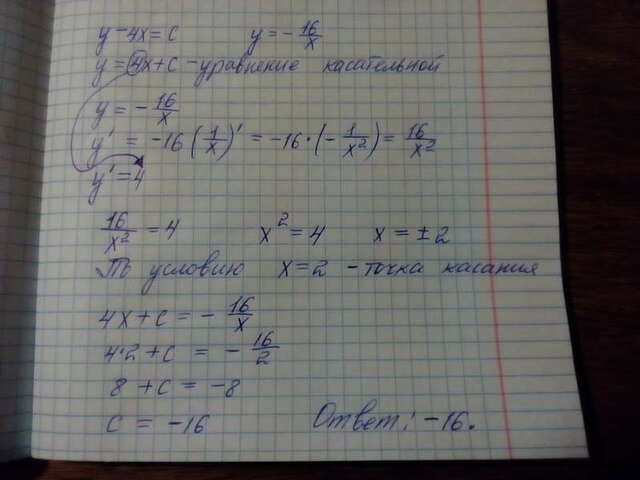 y-4x=c y=-16/x
y=4x+c -уравнение касательной
y=-16/x
y' = -16(1/x)' = -16·(-1/x²)= 16/x²
y'=4
16/x² =4 x²=4 x=±2
По условию x=2 -точка касания
4x+c = -16/x
4·2+c = -16/2
8+c = -8
c = -16 Ответ: -16.